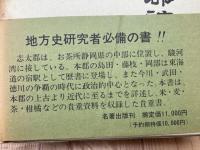 地方史研究者必備の書!!
志太郡は、お茶所静岡県の中部に位置し、駿河
湾に接している。本郡の島田・藤枝・岡部は東海
道の宿駅として歴史に登場し、また今川・武田・
徳川の争覇の時代は政治的中心となった。本書は
本郡の上古より近代に至るまでを詳述し、米・麦・
茶・柑橘などの貴重資料を収録した貴重書。
名著出版刊 限定価11,000円
(予約期特価10,000円)